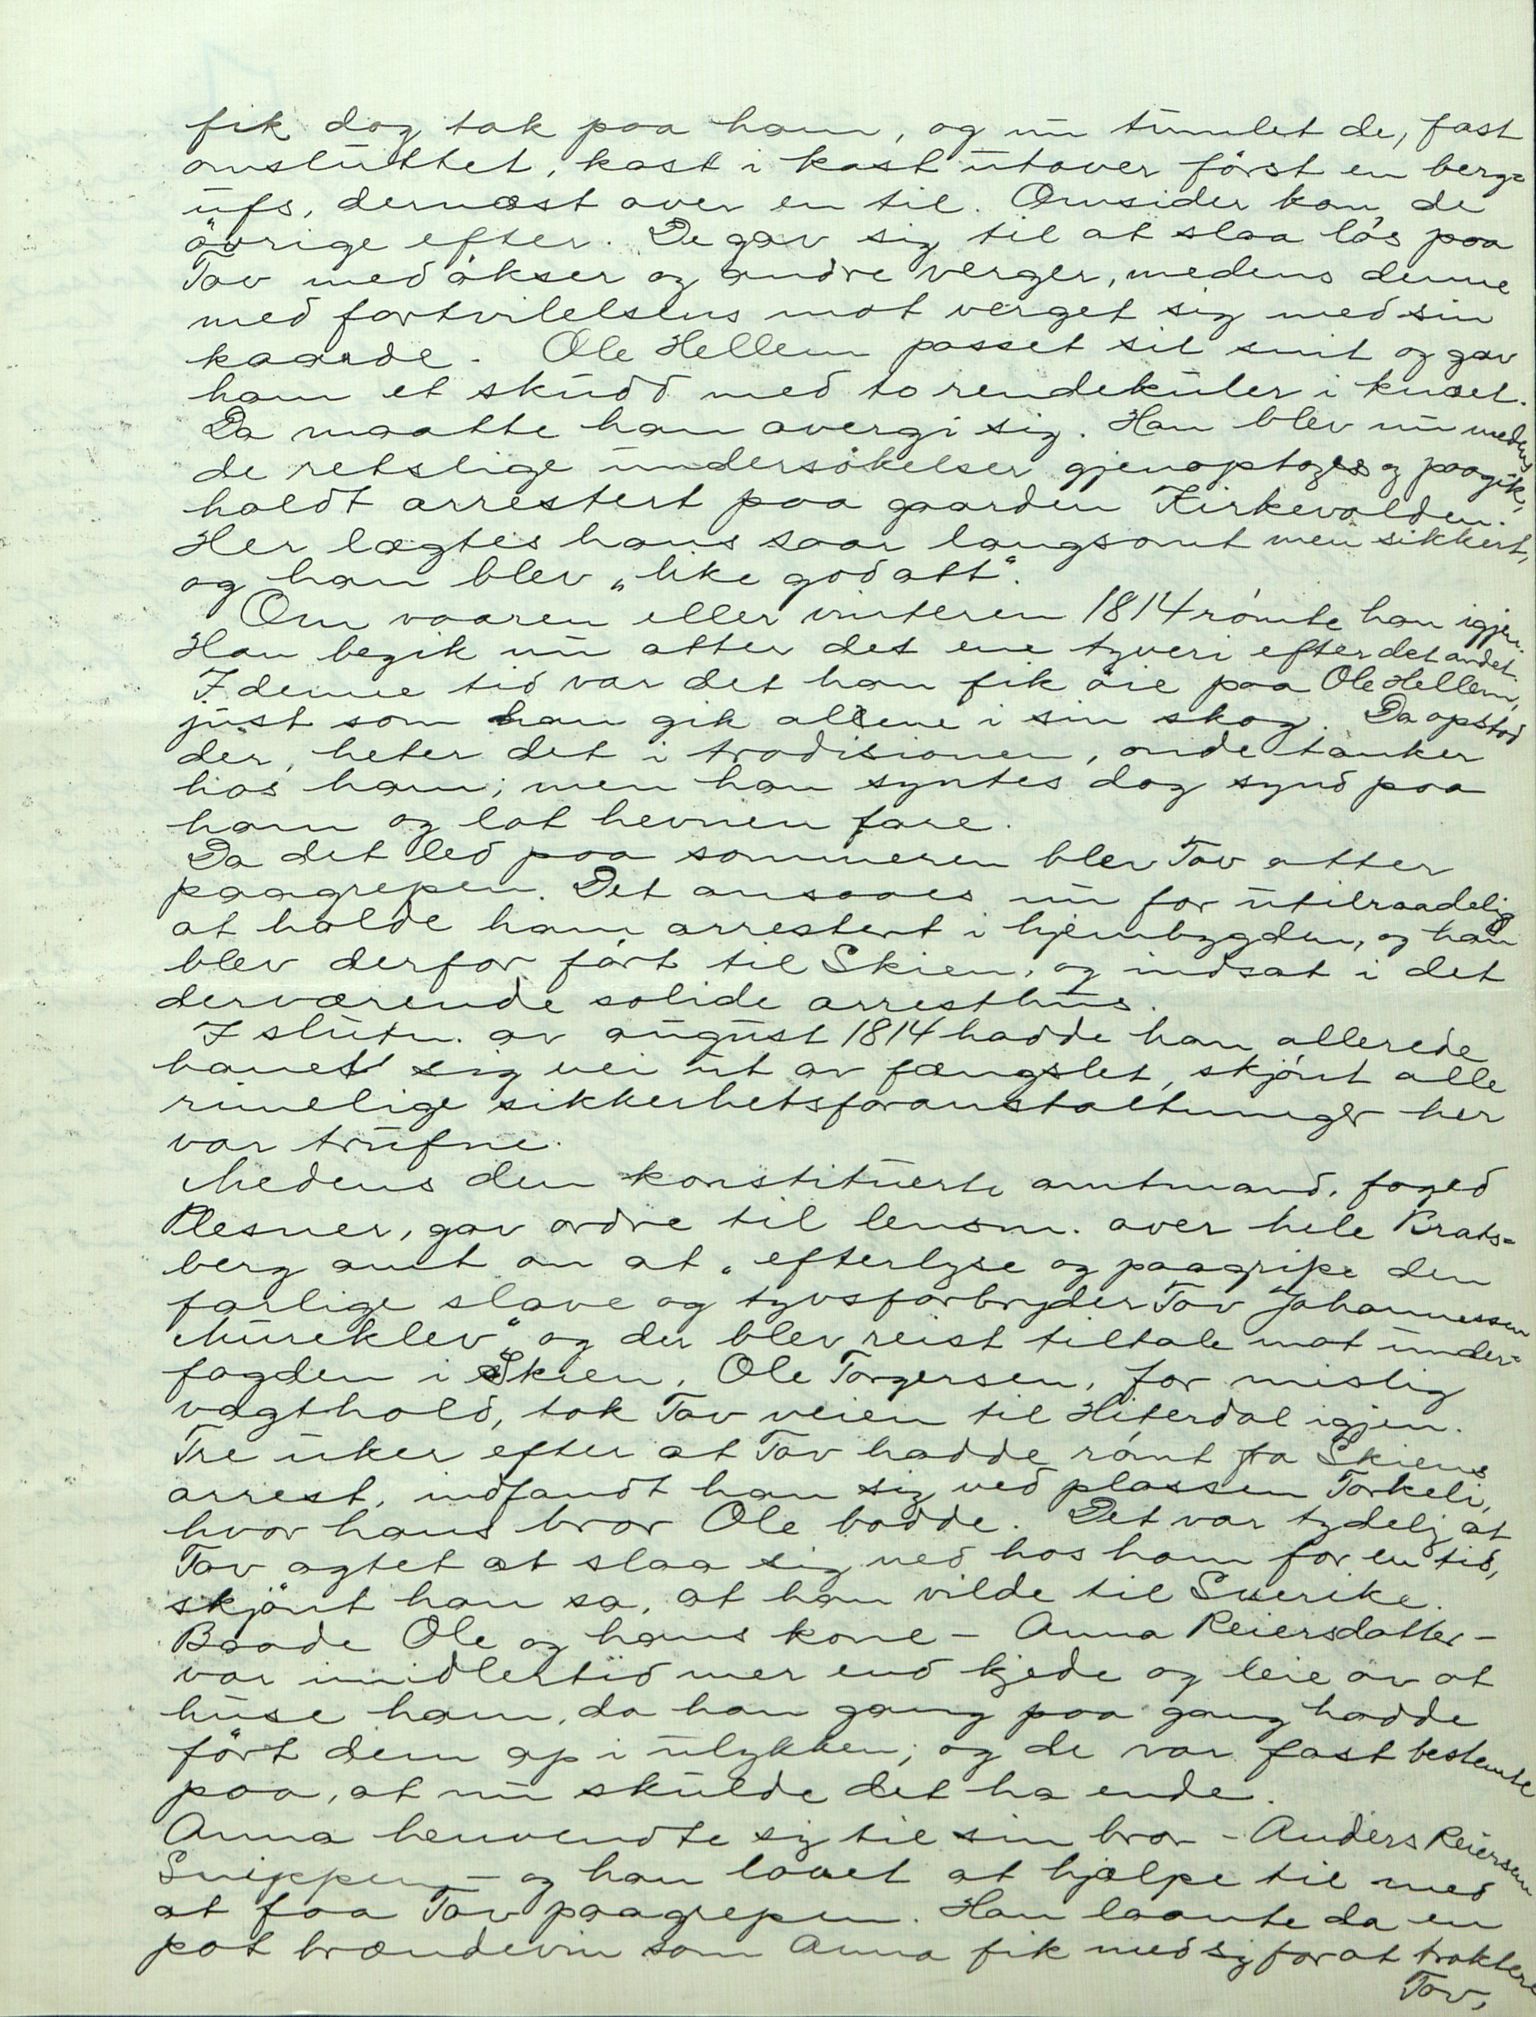 fik dog tak paa ham, og nu tumlet de, fast
omsluttet, kast i kast utover först en berg=
ufs, dernæst over en til. Omsider kom de
övrige efter. De gav sig til at slaa lös paa
Tov med ökser og andre verger, medens denne
med fortvilelsens mot verget sig med sin
kaarde. Ole Hellem passet sit snit og gav
ham et skudd med to rendekuler i knæet.
Da maatte han overgi sig. Han blev nu medens
de retslige undersökelser gjenoptoges og paagik,
holdt arrestert paa gaarden Kirkevolden.
Her lægtes hans saar langsomt men sikkert,
og han blev „like god att".
Om vaaren eller vinteren 1814 römte han igjen.
Han begik nu atter det ene tyveri efter det andet.
I denne tid var det han fik öie paa Ole Hellem,
just som han gik allene i sin skog. Da opstod
der, heter det i tradisionen, onde tanker
hos ham; men han syntes dog synd paa
ham og lot hevnen fare.
Da det led paa sommeren blev Tov atter
paagrepen. Det ansaaes nu for utilraadelig
at holde ham arrestert i hjembygden, og han
blev derfor fört til Skien, og indsat i det
derværende solide arresthus.
I slutn. av august 1814 hadde han allerede
banet sig vei ut av fængslet, skjönt alle
rimelige sikkerhetsforanstaltninger her
var trufne.
Medens den konstituerte amtmand, foged
Plesner, gav ordre til lensm. over hele Brats=
berg amt om at „efterlyse og paagripe den
farlige slave og tyvsforbryder Tov Johannessen
Mureklev" og der blev reist tiltale mot under=
fogden i Skien, Ole Torgersen, for mislig
vagthold, tok Tov veien til Hiterdal igjen.
Tre uker efter at Tov hadde römt fra Skiens
arrest, indfandt han sig ved plassen Torkeli,
hvor hans bror Ole bodde. Det var tydelig at
Tov agtet at slaa sig ned hos ham for en tid,
skjönt han sa, at han vilde til Sverike.
Baade Ole og hans kone – Anna Reiersdatter –
var imidlertid mer end kjede og leie av at
huse ham, da han gang paa gang hadde
fört dem op i ulykken; og de var fast bestemte
paa, at nu skulde det ha ende.
Anna henvendte sig til sin bror – Anders Reiersen
Snippen – og han lovet at hjælpe til med
at faa Tov paagrepen. Han laante da en
pot brændevin som Anna fik med sig for at traktere
Tov,